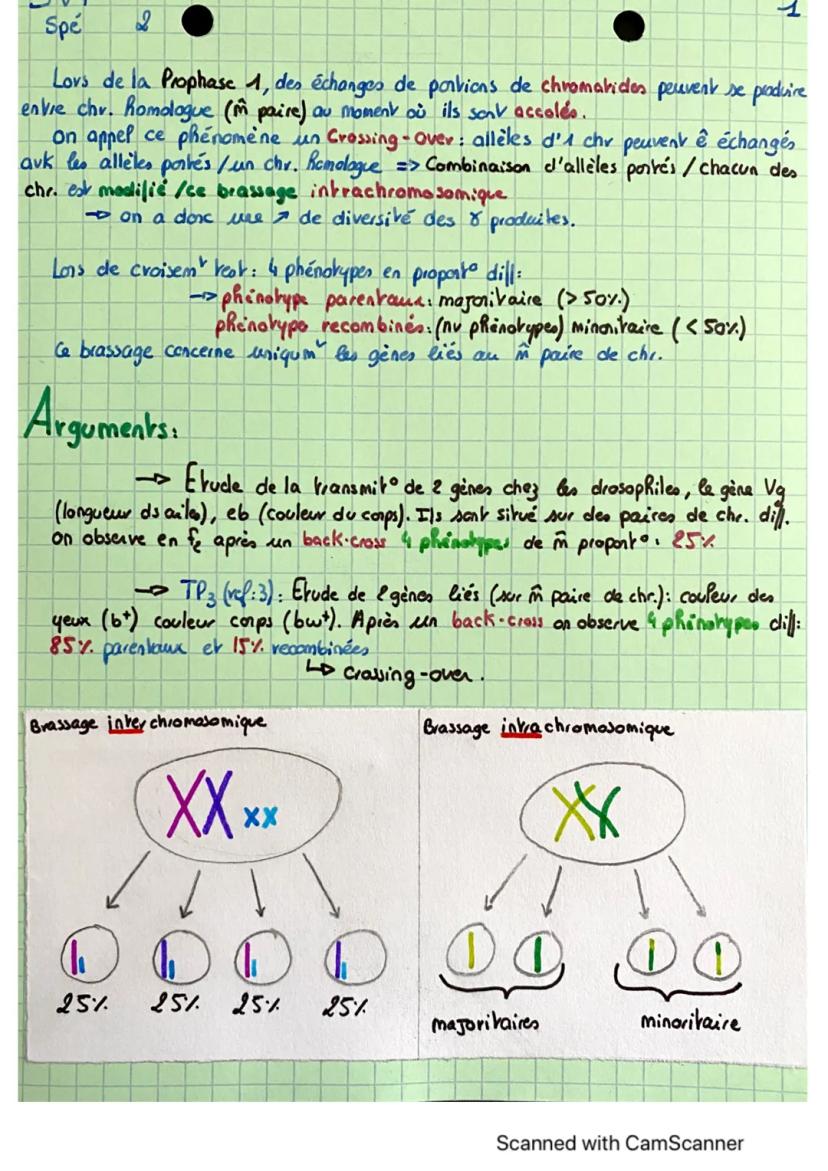 Spé 2
1
Lors de la Prophase 1, des échanges de portions de chromatides peuvent se produire
entre chr. Homologue (m̂ paire) au moment où ils sont accolés.
On appel ce phénomène un Crossing-Over : allèles d'1 chr peuvent ê échangés
avk les allèles portés / un chr. Homologue => Combinaison d'allèles portés / chacun des
chr. est modifié / ce brassage intrachromosomique
→ on a donc une ↗ de diversité des γ produites.
Lors de croisemt test : 4 phénotypes en proport° diff :
→ phénotype parentaux : majoritaire (> 50%)
phénotype recombinés : (nv phénotypes) minoritaire (< 50%)
Ce brassage concerne uniqumt les gènes liés au m̂ paire de chr.
Arguments :
→ Etude de la transmit° de 2 gènes chez les drosophiles, le gène Vg
(longueur ds ailes), eb (couleur du corps). Ils sont situé sur des paires de chr. diff.
on observe en f2 après un back-cross 4 phénotypes de m̂ proport° : 25%
→ TP3 (ref:3) : Etude de 2 gènes liés (sur m̂ paire de chr.) : couleur des
yeux (b+) couleur corps (bw+). Après un back-cross on observe 4 phénotypes diff :
85% parentaux et 15% recombinées
↳ crossing-over.
Brassage interchromosomique
25% 25% 25% 25%
Brassage intrachromosomique
majoritaires minoritaire
Scanned with CamScanner